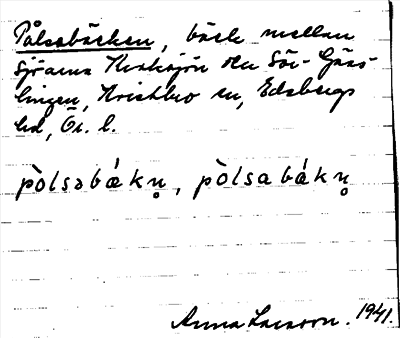 Pålsabäcken, bäck mellan
sjöarna Korksjön och Sör-Gäss-
lingen, Knista sn, Edsbergs
hd, Ör. l.
pòlsabǽkn̥, pòlsabákn̥
Anna Larsson. 1941.